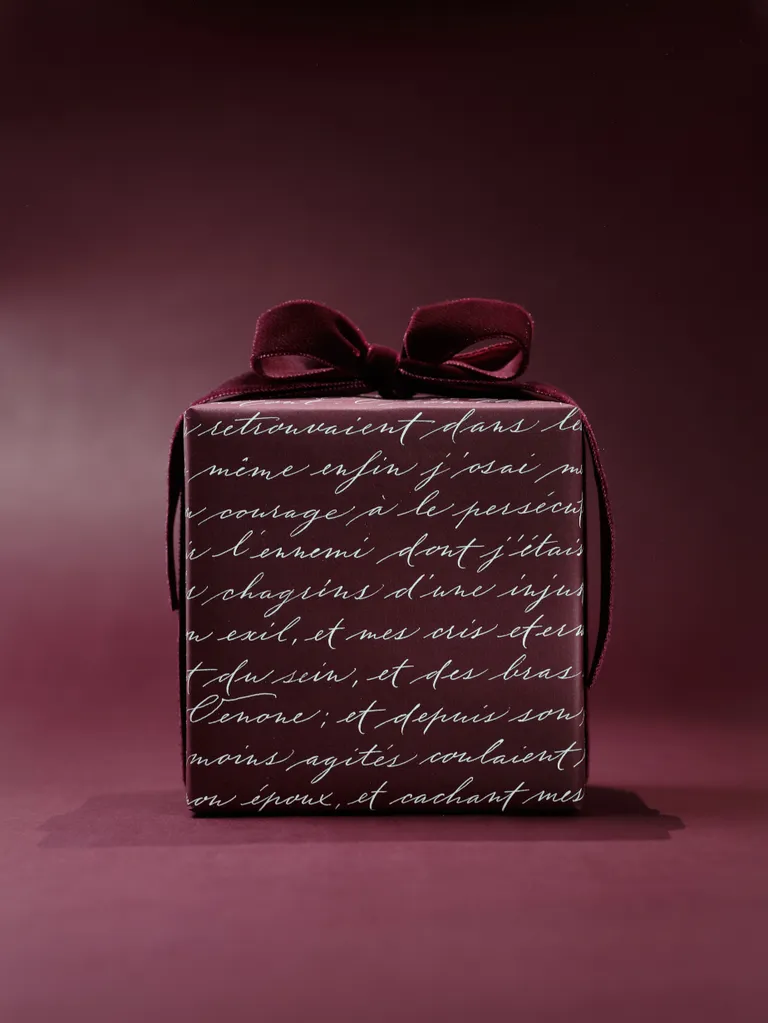 retrouvaient dans le
même enfin j'osai m
courage à le persécut
l'ennemi dont j'étais
chagrins d'une injus
n exil, et mes cris etern
t du sein, et des bras
Oenone; et depuis son
moins agités coulaient
on époux, et cachant mes